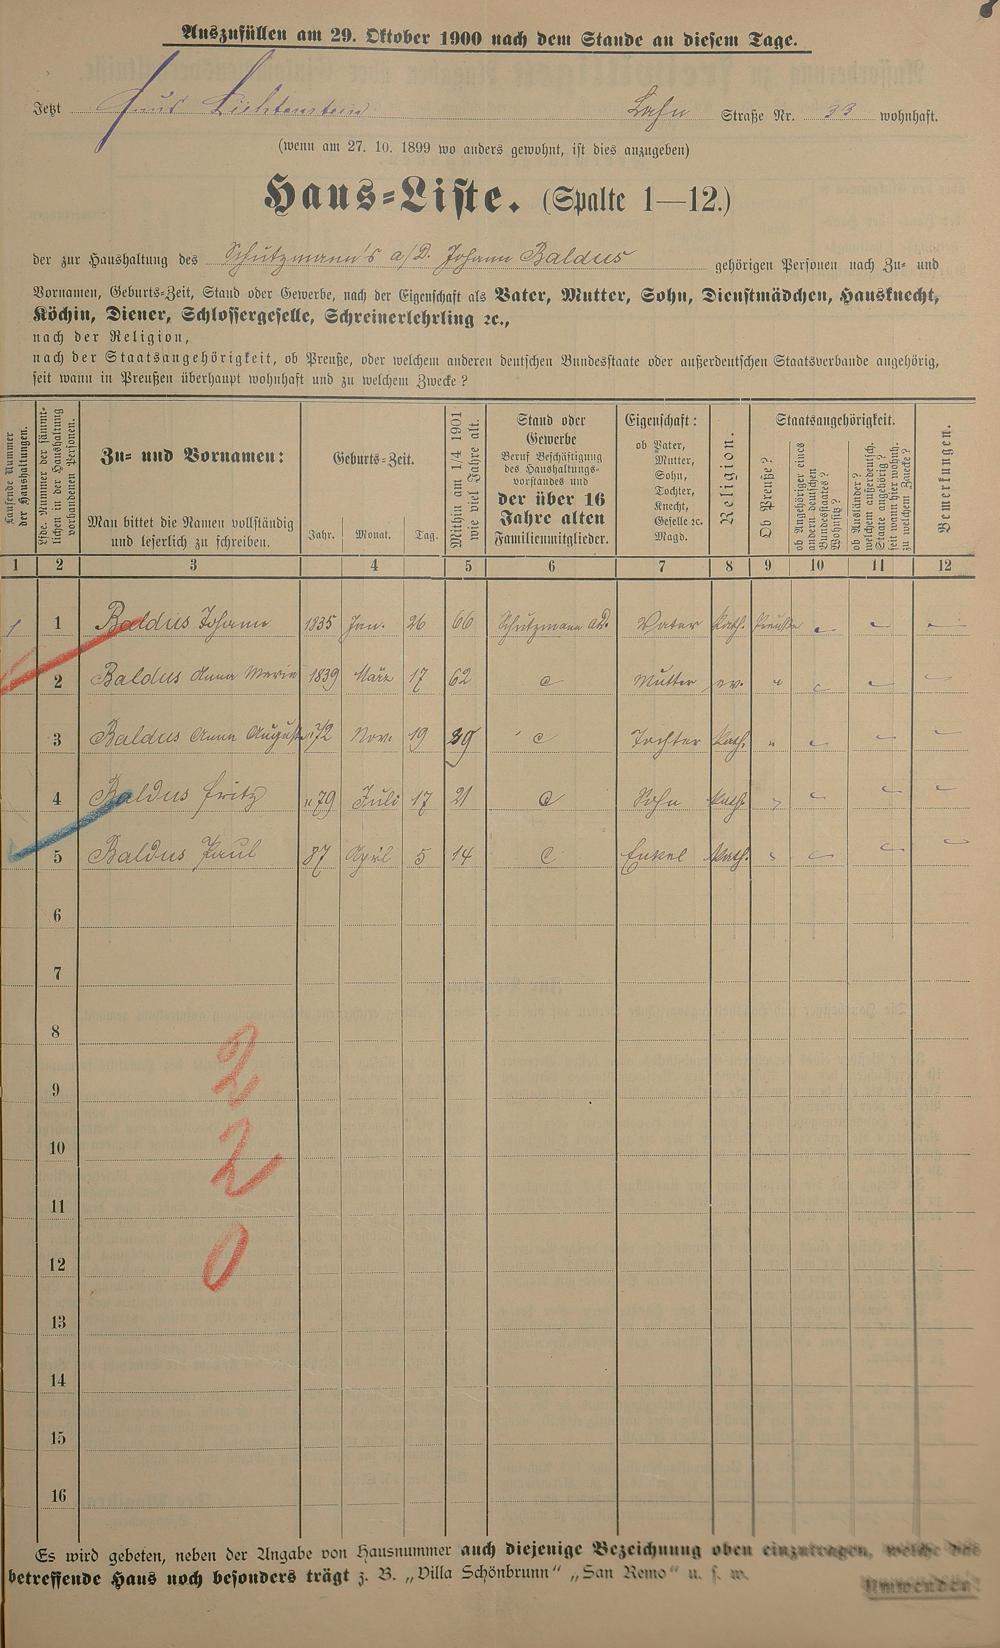 Auszufüllen am 29. Oktober 1900 nach dem Stande an diesem Tage.
Jetzt Haus Lichtenstein Lahn Straße Nr. 33 wohnhaft.
(wenn am 27. 10. 1899 wo anders gewohnt, ist dies anzugeben)
Haus-Liste. (Spalte 1—12.)
der zur Haushaltung des Schutzmann's a/D. Johann Baldus gehörigen Personen nach Zu- und
Vornamen, Geburts-Zeit, Stand oder Gewerbe, nach der Eigenschaft als Vater, Mutter, Sohn, Dienstmädchen, Hausknecht,
Köchin, Diener, Schlossergeselle, Schreinerlehrling ꝛc.,
nach der Religion,
nach der Staatsangehörigkeit, ob Preuße, oder welchem anderen deutschen Bundesstaate oder außerdeutschen Staatsverbande angehörig,
seit wann in Preußen überhaupt wohnhaft und zu welchem Zwecke?
Laufende Nummer
der Haushaltungen.
Lfde. Nummer der sämmt-
lichen in der Haushaltung
vorhandenen Personen.
Zu- und Vornamen:
Man bittet die Namen vollständig
und leserlich zu schreiben.
Geburts-Zeit.
Jahr. Monat. Tag.
Mithin am 1/4 1901
wie viel Jahre alt.
Stand oder
Gewerbe
Beruf Beschäftigung
des Haushaltungs-
vorstandes und
der über 16
Jahre alten
Familienmitglieder.
Eigenschaft:
ob Vater,
Mutter,
Sohn,
Tochter,
Knecht,
Geselle ꝛc.
Magd.
Religion.
Staatsangehörigkeit.
Ob Preuße?
ob Angehöriger eines
andern deutschen
Bundesstaates?
Wohnsitz?
ob Ausländer?
welchem außerdeutsch.
Staate angehörig?
seit wann hier wohnh.
zu welchem Zwecke?
Bemerkungen.
1 2 3 4 5 6 7 8 9 10 11 12
1 1 Baldus Johann 1835 Jan. 26 66 Schutzmann a.D. Vater kath. Preuße
2 Baldus Anna Maria 1839 März 17 62 Mutter ev. "
3 Baldus Anna Auguste 72 Nov. 19 29 Tochter kath. "
4 Baldus Fritz " 79 Juli 17 21 Sohn kath. "
5 Baldus Paul 87 April 5 14 Enkel kath. "
6
7
8
9
10
11
12
13
14
15
16
2
2
0
Es wird gebeten, neben der Angabe von Hausnummer auch diejenige Bezeichnung oben einzutragen, welche das
betreffende Haus noch besonders trägt z. B. „Villa Schönbrunn“ „San Remo“ u. s. w.
Umwenden!